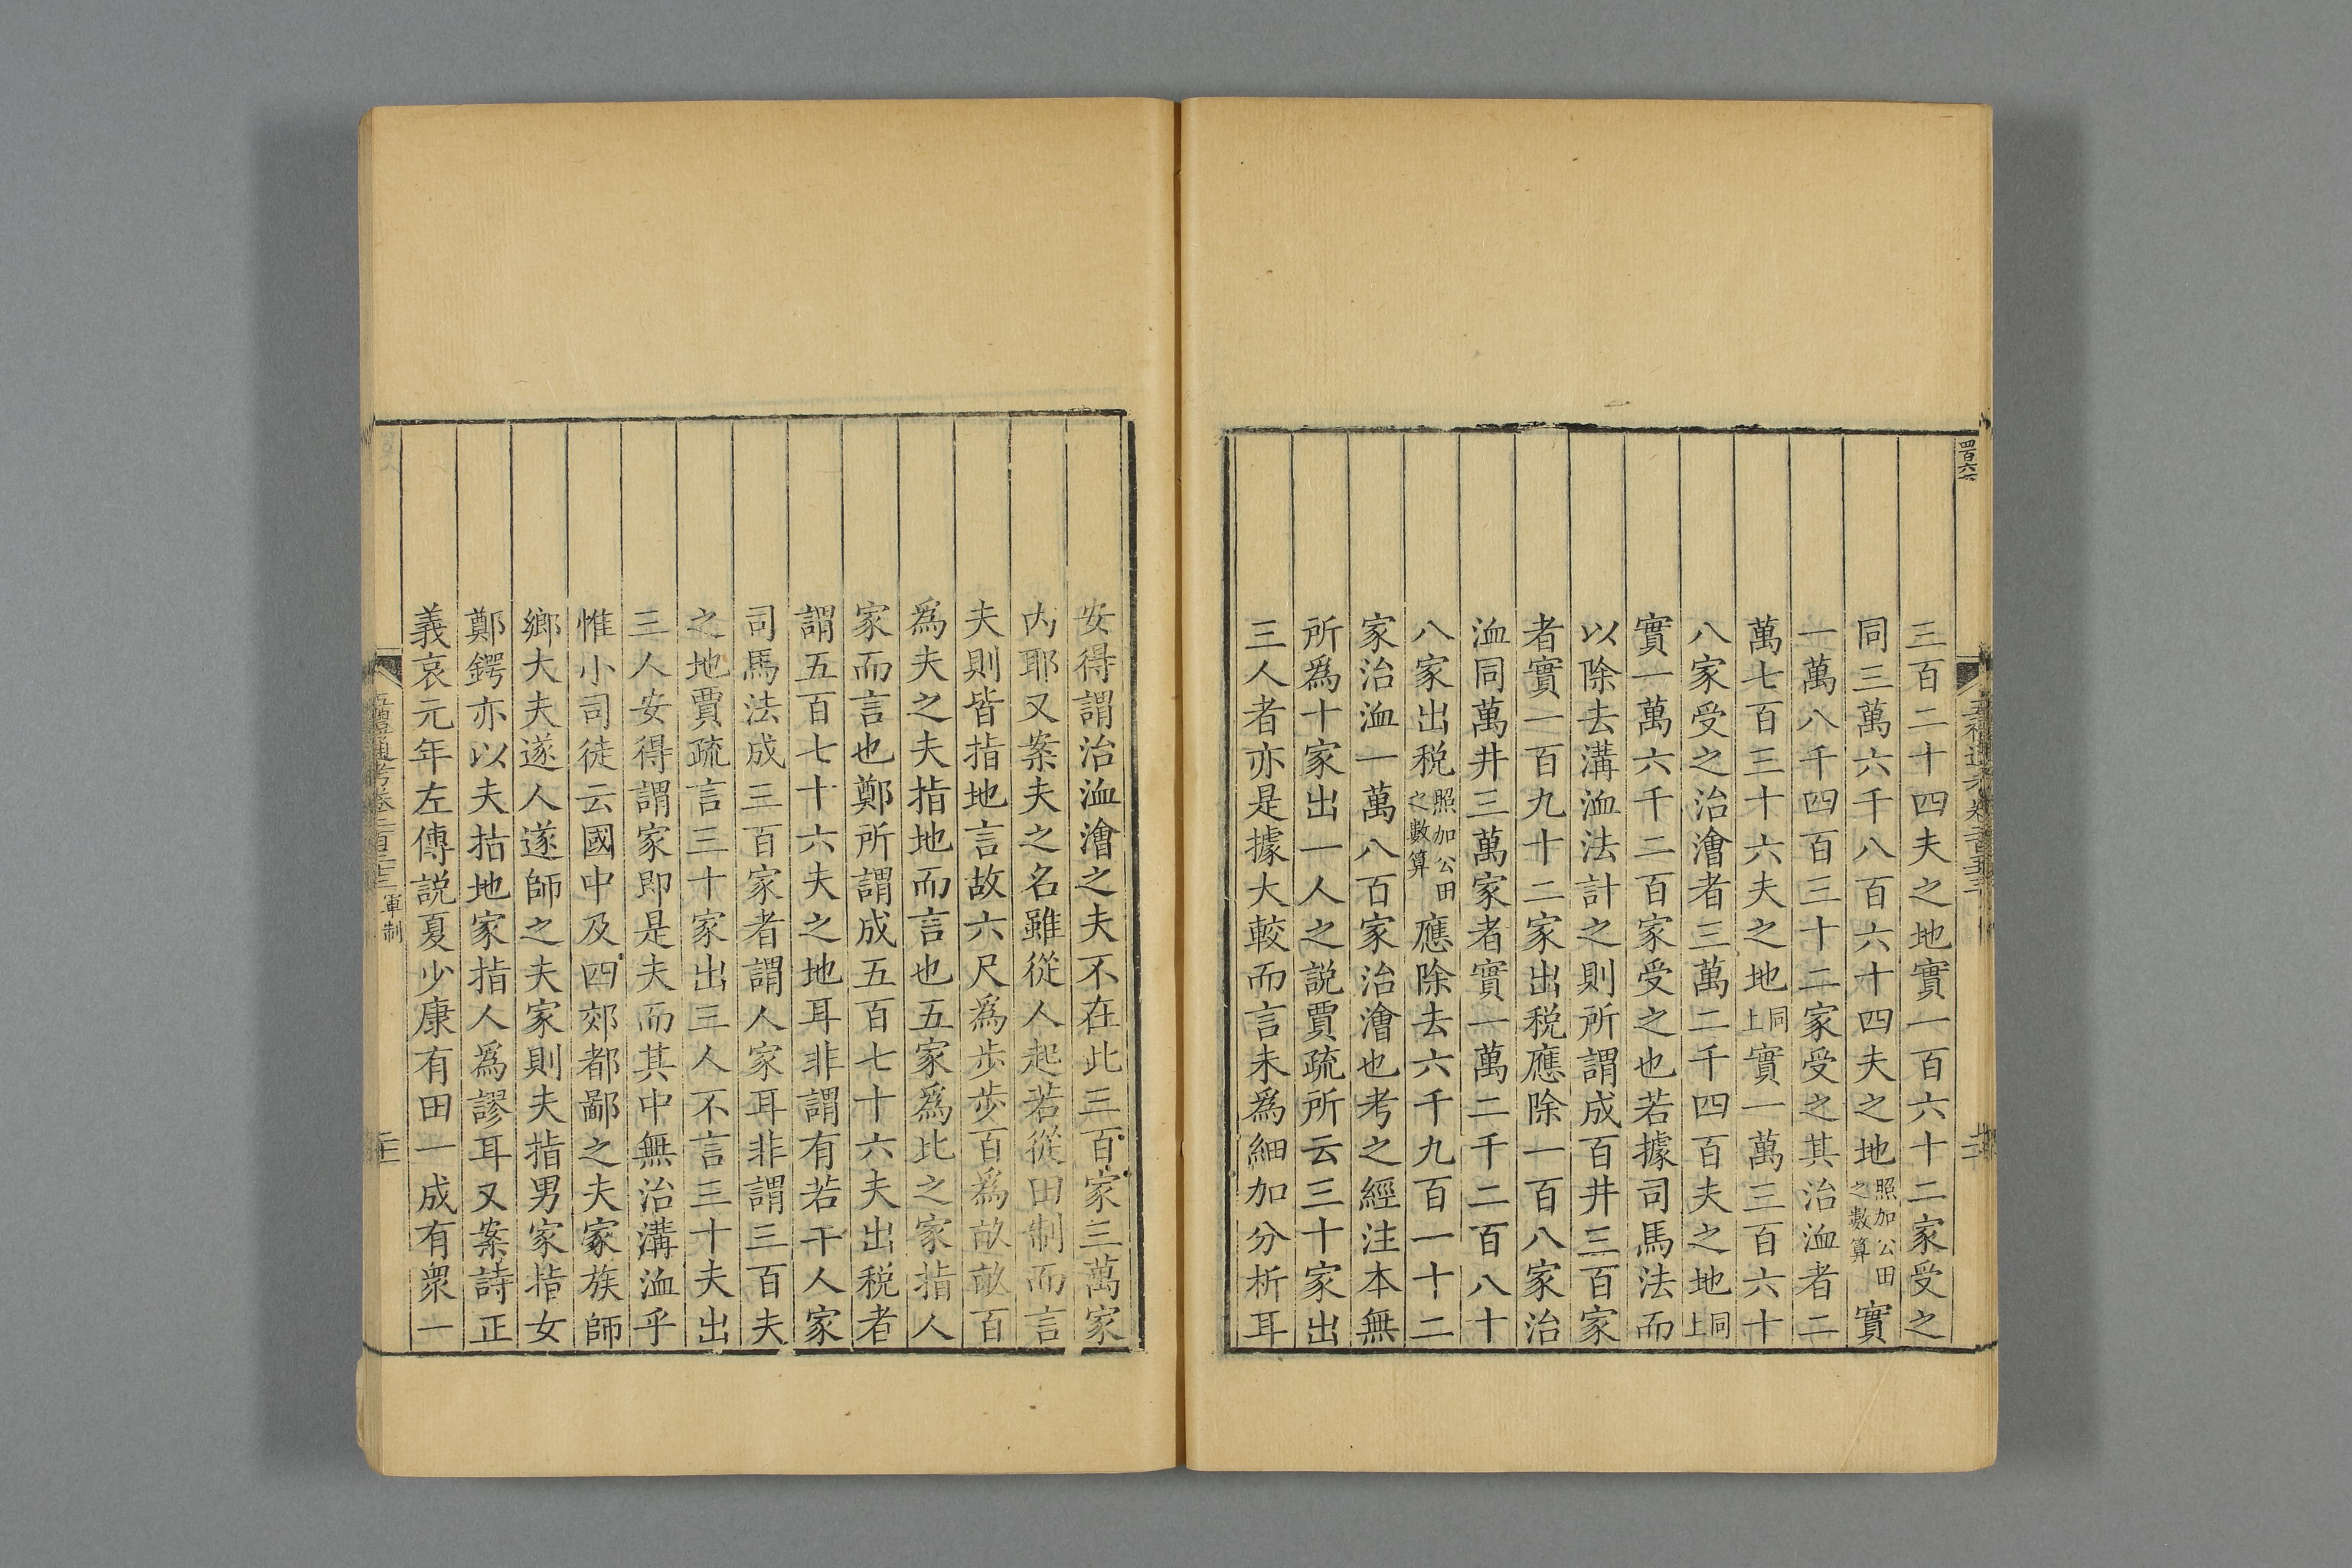 三百二十四夫之地實一百六十二家受之
同三萬六千八百六十四夫之地照加公田之數算實
一萬八千四百三十二家受之其治洫者二
萬七百三十六夫之地同上實一萬三百六十
八家受之治澮者三萬二千四百夫之地同上
實一萬六千二百家受之也若據司馬法而
以除去溝洫法計之則所謂成百井三百家
者實一百九十二家出税應除一百八家治
洫同萬井三萬家者實一萬二千二百八十
八家出税照加公田之數算應除去六千九百一十二
家治洫一萬八百家治澮也考之經注本無
所爲十家出一人之説賈疏所云三十家出
三人者亦是據大較而言未爲細加分析耳
安得謂治洫澮之夫不在此三百家三萬家
内耶又案夫之名雖從人起若從田制而言
夫則皆指地言故六尺爲步步百爲畝畝百
爲夫之夫指地而言也五家爲比之家指人
家而言也鄭所謂成五百七十六夫出税者
謂五百七十六夫之地耳非謂有若干人家
司馬法成三百家者謂人家耳非謂三百夫
之地賈疏言三十家出三人不言三十夫出
三人安得謂家即是夫而其中無治溝洫乎
惟小司徒云國中及四郊都鄙之夫家族師
鄉大夫遂人遂師之夫家則夫指男家指女
鄭鍔亦以夫指地家指人爲謬耳又案詩正
義哀元年左傳説夏少康有田一成有衆一
軍制